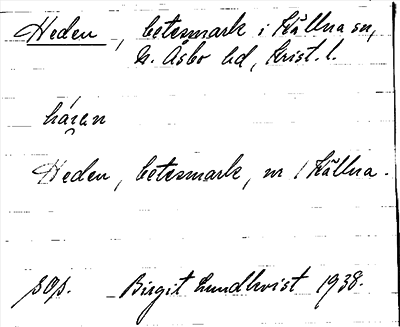 Heden, betesmark i Källna sn,
N. Åsbo hd, Krist. l.
Heden, betesmark, nr 1 Källna.
Birgit Lundkvist 1938.